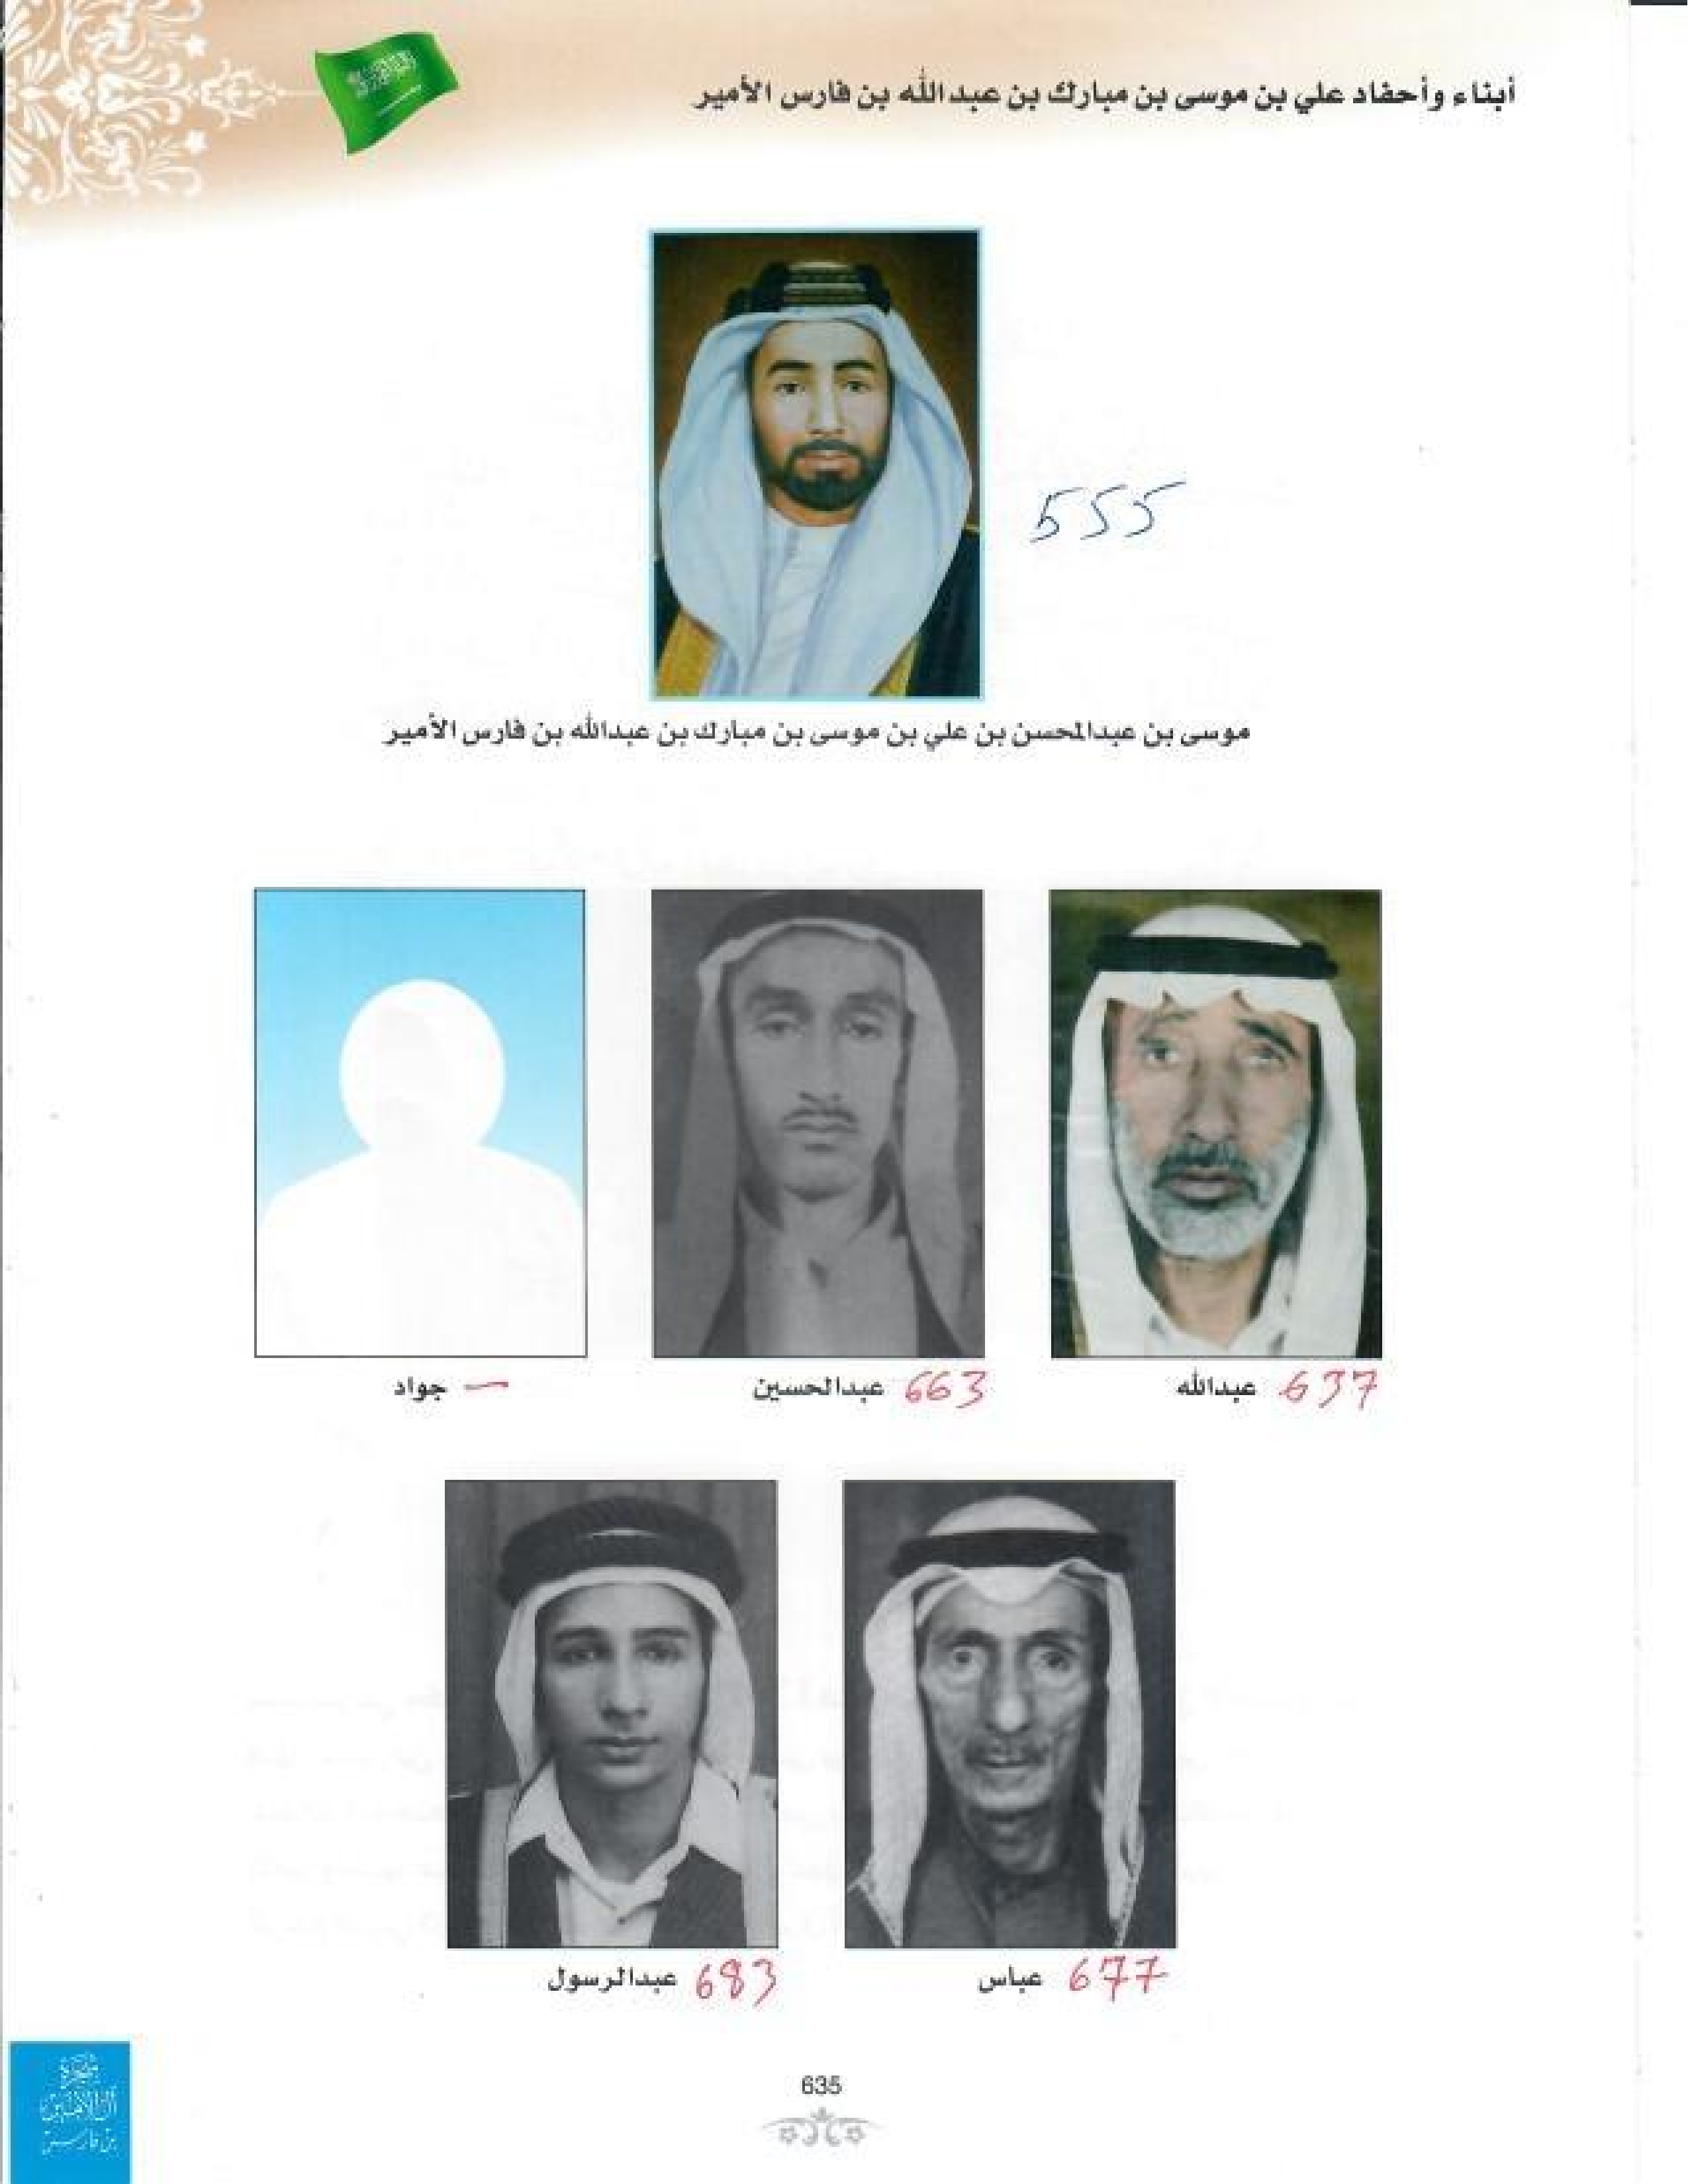 أبناء وأحفاد علي بن موسى بن مبارك بن عبدالله بن فارس الأمير
555
موسى بن عبدالمحسن بن علي بن موسى بن مبارك بن عبدالله بن فارس الأمير
637 عبدالله
663 عبدالحسين
— جواد
677 عباس
683 عبدالرسول
635
شجرة
آل الأمير
بن فارس